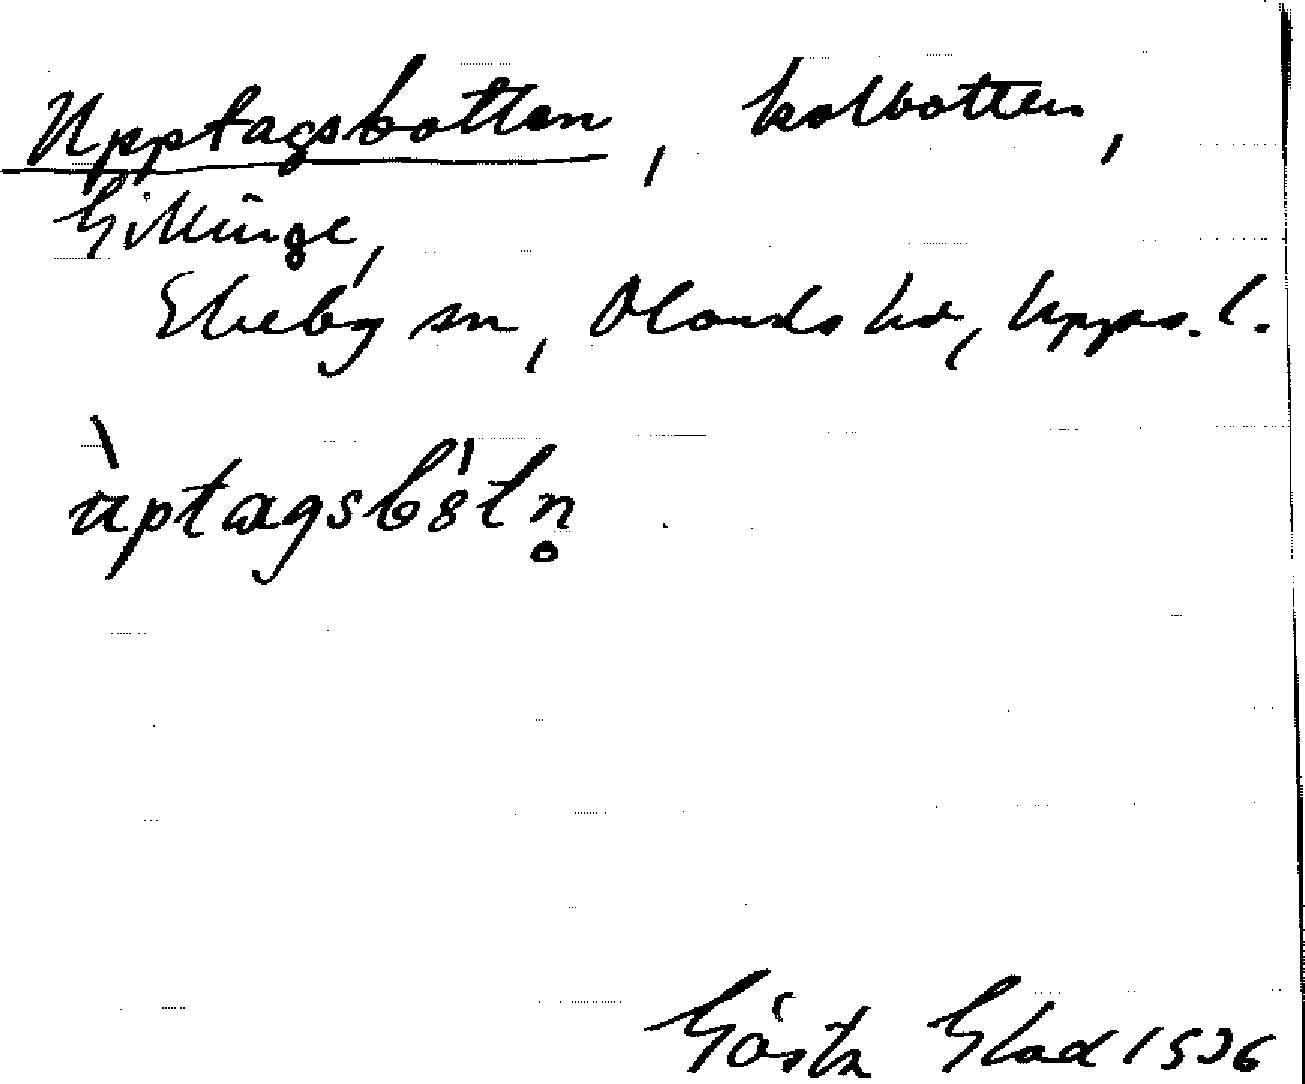 Upptagsbotten, kolbotten,
Gillinge,
Ekeby sn, Olands hd, Upps. l.
ùptagsbòtn̥
Gösta Glad 1936